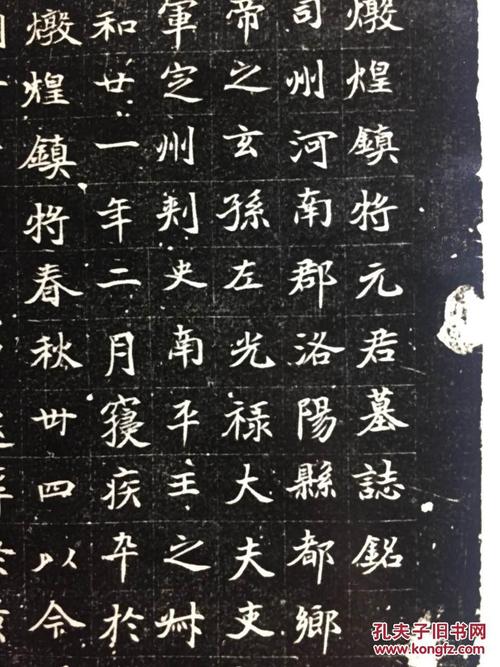 燉煌鎮將元君墓誌銘
司州河南郡洛陽縣都鄉
帝之玄孫左光禄大夫吏
軍定州刾史南平王之
和廿一年二月寑疾卒於
燉煌鎮將春秋卌四以今
孔夫子旧书网
www.kongfz.com